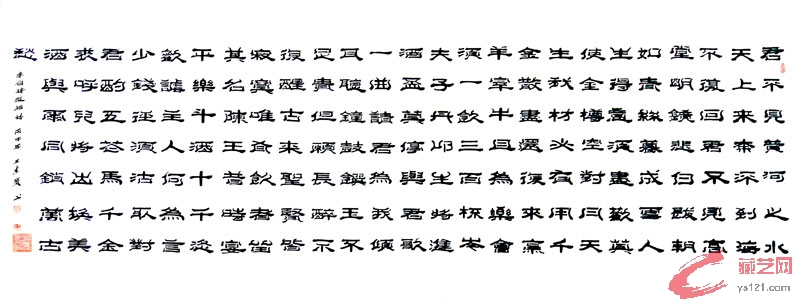 君不見黃河之水
天上來奔流到海
不復回君不見高
堂明鏡悲白髮朝
如青絲暮成雪人
生得意須盡歡莫
使金樽空對月天
生我材必有用千
金散盡還復來烹
羊宰牛且為樂會
須一飲三百杯岑
夫子丹邱生將進
酒君莫停與君歌
一曲請君為我傾
耳聽鐘鼓饌玉不
足貴但願長醉不
復醒古來聖賢皆
寂寞唯有飲者留
其名陳王昔時宴
平樂斗酒十千恣
歡謔主人何為言
少錢徑須沽取對
君酌五花馬千金
裘呼兒將出換美
酒與爾同銷萬古
愁
藏艺网
ys121.com